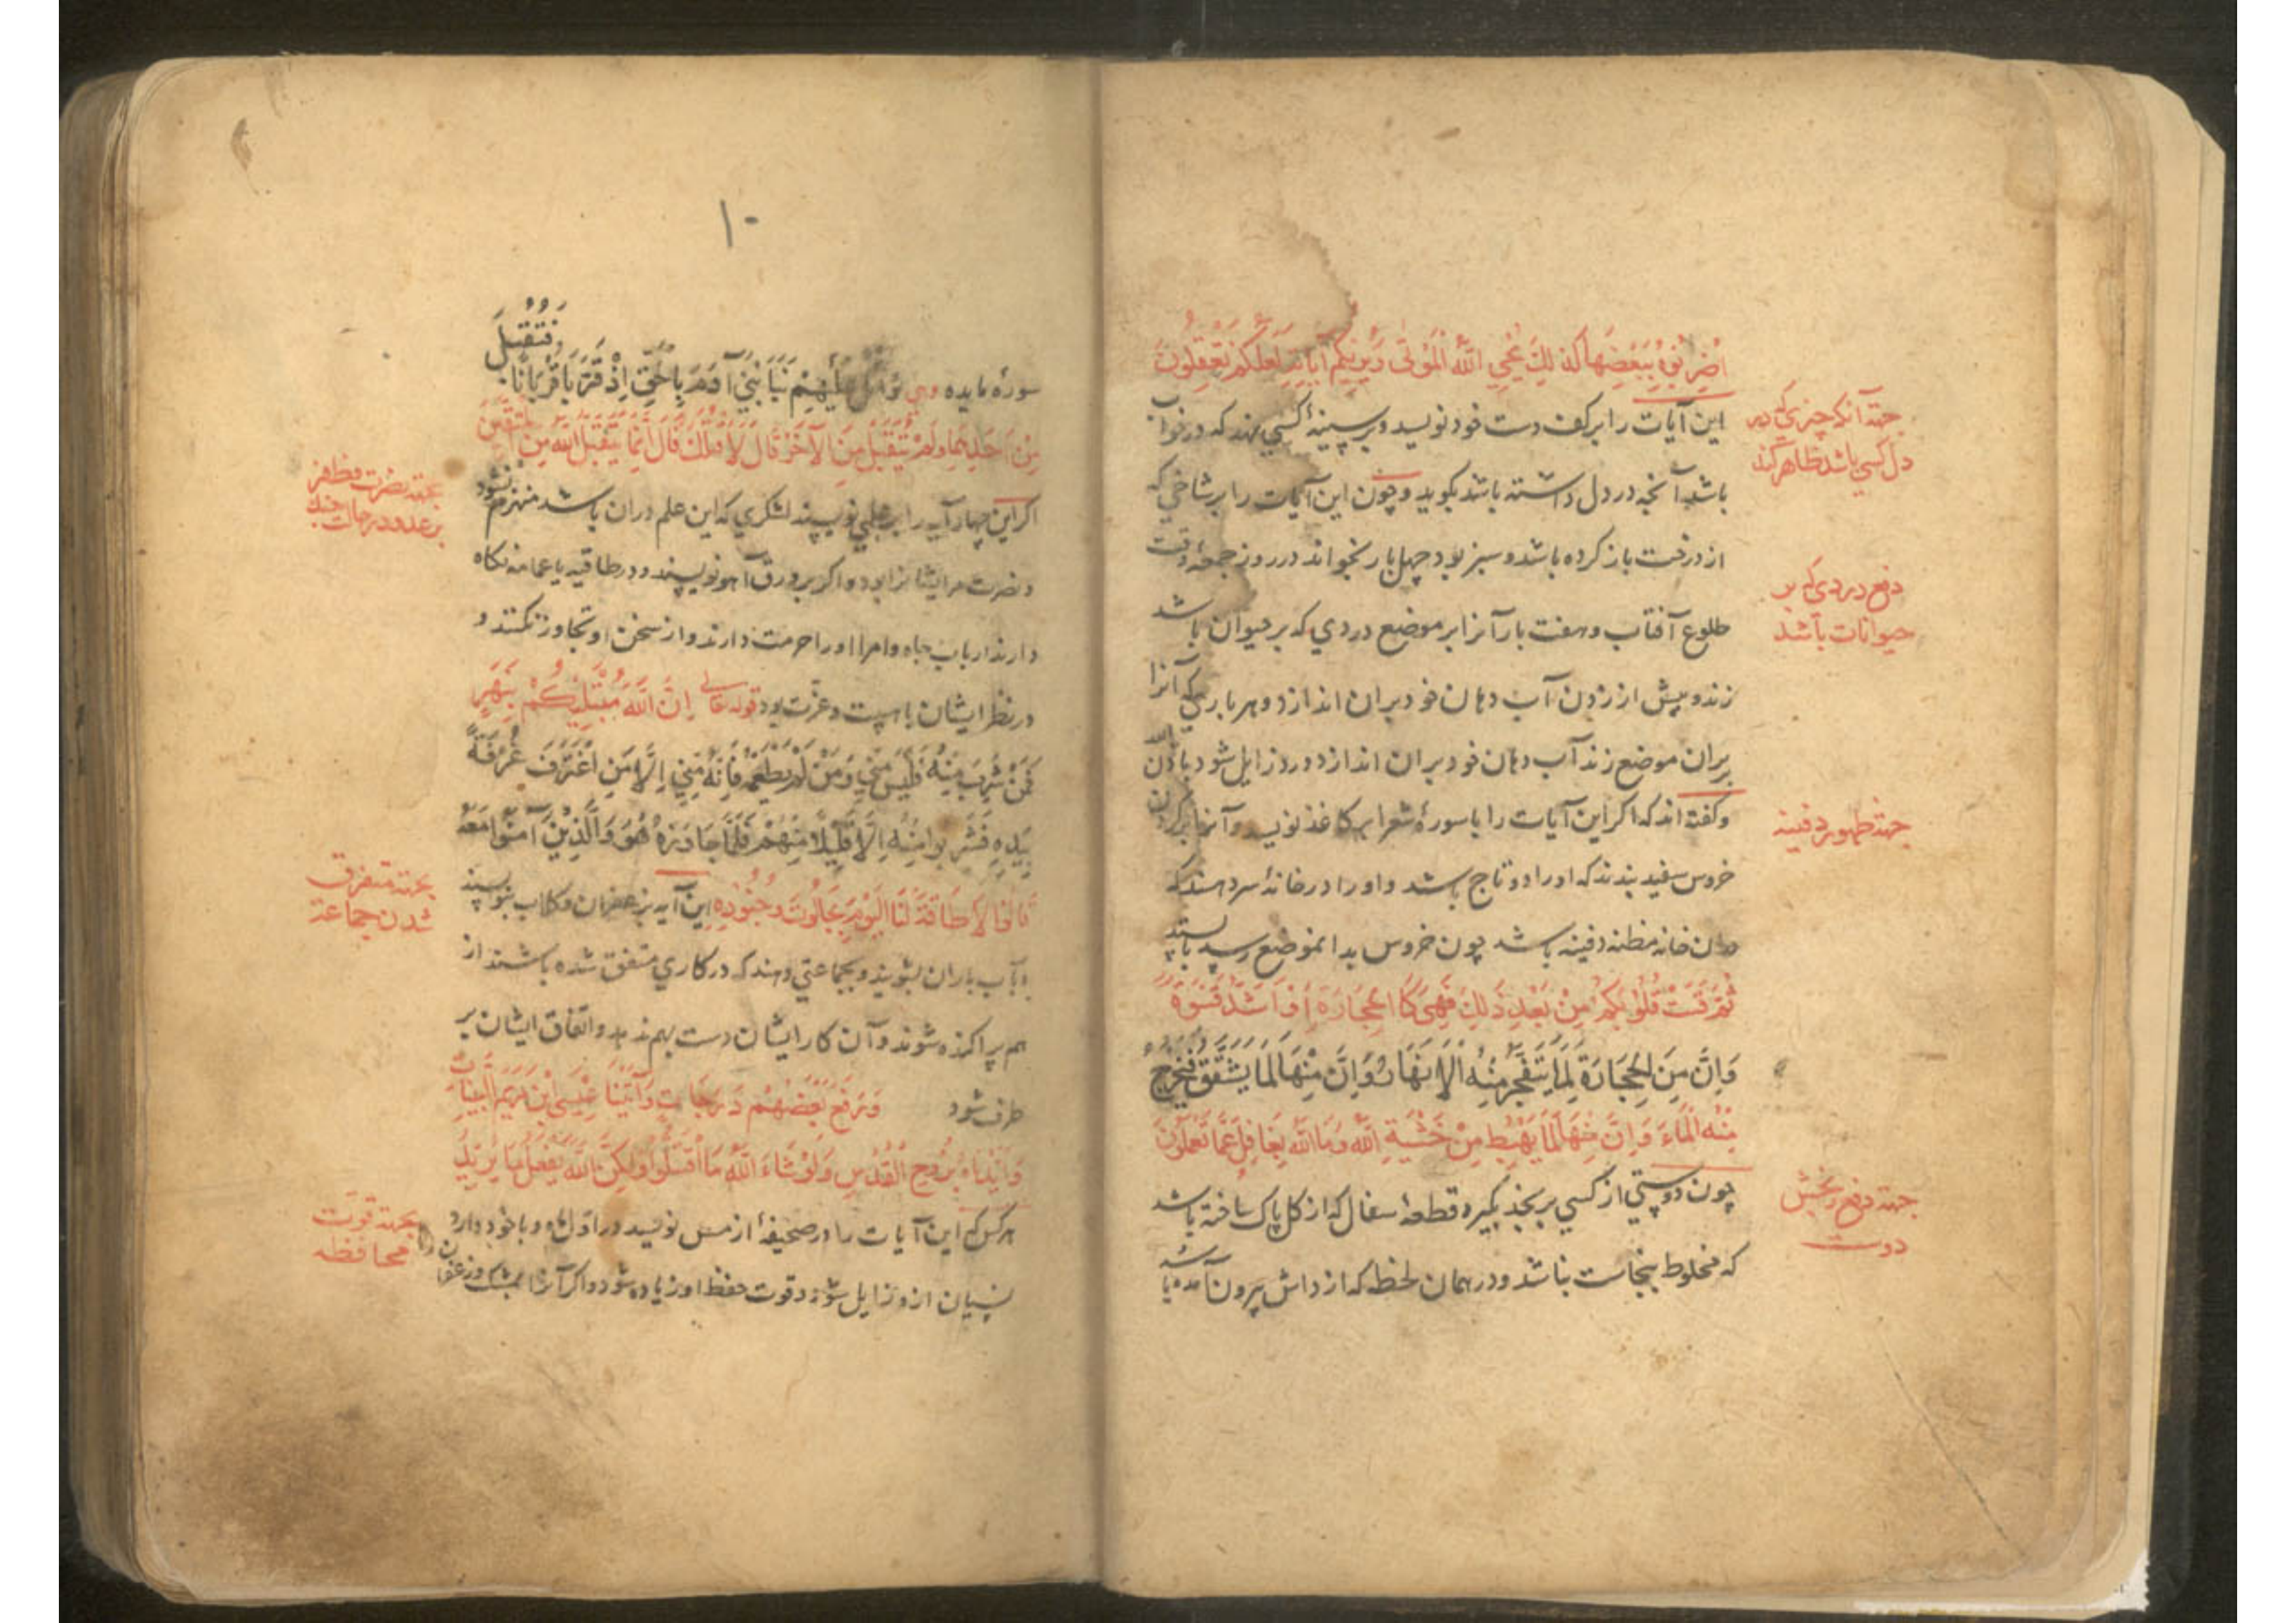 اضْرِبُوهُ بِبَعْضِهَا كَذَلِكَ يُحْيِي اللَّهُ الْمَوْتَى وَيُرِيكُمْ آيَاتِهِ لَعَلَّكُمْ تَعْقِلُونَ
این آیات را بر کف دست خود نویسد و بر سینهٔ کسی نهد که در خواب
جهته آنکه چیزی که در
دل کسی باشد ظاهر کند
باشد آنچه در دل داشته باشد بکوید و چون این آیات را بر شاخی که
از درخت باز کرده باشد و سبز بود چهل بار بخواند در روز جمعه وقت
دفع دردی که بر
حیوانات باشد
طلوع آفتاب و هفت بار آنرا بر موضع دردی که بر حیوان باشد
زند و پیش از زدن آب دهان خود بران اندازد و هر باری که آنرا
بران موضع زند آب دهان خود بران اندازد درد زایل شود باذن الله
وکفته اند که اکر این آیات را با سورهٔ شعرا بر کاغذ نویسد و آنرا بر کردن
جهته ظهور دفینه
خروس سفید بندند که او را دو تاج باشد و او را در خانهٔ سر دهند که
دران خانه مظنه دفینه باشد چون خروس بدانموضع رسد بایستد
ثُمَّ قَسَتْ قُلُوبُكُمْ مِنْ بَعْدِ ذَلِكَ فَهِيَ كَالْحِجَارَةِ أَوْ أَشَدُّ قَسْوَةً
وَإِنَّ مِنَ الْحِجَارَةِ لَمَا يَتَفَجَّرُ مِنْهُ الْأَنْهَارُ وَإِنَّ مِنْهَا لَمَا يَشَّقَّقُ فَيَخْرُجُ
مِنْهُ الْمَاءُ وَإِنَّ مِنْهَا لَمَا يَهْبِطُ مِنْ خَشْيَةِ اللَّهِ وَمَا اللَّهُ بِغَافِلٍ عَمَّا تَعْمَلُونَ
چون دوستی از کسی برنجد بکیرد قطعهٔ سفال که از کل پاک ساخته باشد
جهته دفع رنجش
دوست
که مخلوط بنجاست نباشد و در همان لحظه که از داش بیرون آمده باشد
۱۰
سورهٔ مایده وهی وَاتْلُ عَلَيْهِمْ نَبَأَ ابْنَيْ آدَمَ بِالْحَقِّ إِذْ قَرَّبَا قُرْبَانًا فَتُقُبِّلَ
مِنْ أَحَدِهِمَا وَلَمْ يُتَقَبَّلْ مِنَ الْآخَرِ قَالَ لَأَقْتُلَنَّكَ قَالَ إِنَّمَا يَتَقَبَّلُ اللَّهُ مِنَ الْمُتَّقِينَ
بجهته نصرت و ظفر
بر عدو در حالت جنك
اکر این چهار آیه را بر علمی نویسند لشکری که این علم دران باشد منهزم نشود
و نصرت مر ایشانرا بود و اکر بر ورق آهو نویسند و در طاقیه یا عمامه نکاه
دارند ارباب جاه و امرا او را حرمت دارند و از سخن او تجاوز نکنند و
در نظر ایشان با هیبت و عزت بود قوله تعالی إِنَّ اللَّهَ مُبْتَلِيكُمْ بِنَهَرٍ
فَمَنْ شَرِبَ مِنْهُ فَلَيْسَ مِنِّي وَمَنْ لَمْ يَطْعَمْهُ فَإِنَّهُ مِنِّي إِلَّا مَنِ اغْتَرَفَ غُرْفَةً
بِيَدِهِ فَشَرِبُوا مِنْهُ إِلَّا قَلِيلًا مِنْهُمْ فَلَمَّا جَاوَزَهُ هُوَ وَالَّذِينَ آمَنُوا مَعَهُ
قَالُوا لَا طَاقَةَ لَنَا الْيَوْمَ بِجَالُوتَ وَجُنُودِهِ این آیه بزعفران و کلاب بنویسند
بجهته متفرق
شدن جماعة
و بآب باران بشویند و بجماعتی دهند که در کاری متفق شده باشند از
هم پراکنده شوند و آن کار ایشان دست بهم ندهد و اتفاق ایشان بر
طرف شود وَرَفَعَ بَعْضَهُمْ دَرَجَاتٍ وَآتَيْنَا عِيسَى ابْنَ مَرْيَمَ الْبَيِّنَاتِ
وَأَيَّدْنَاهُ بِرُوحِ الْقُدُسِ وَلَوْ شَاءَ اللَّهُ مَا اقْتَتَلُوا وَلَكِنَّ اللَّهَ يَفْعَلُ مَا يُرِيدُ
هر کس که این آیات را در صحیفهٔ از مس نویسد در اول ماه و با خود دارد
بجهته قوت
محافظه
نسیان ازو زایل شود و قوت حفظ او زیاده شود و اکر آنرا بمشک و زعفران